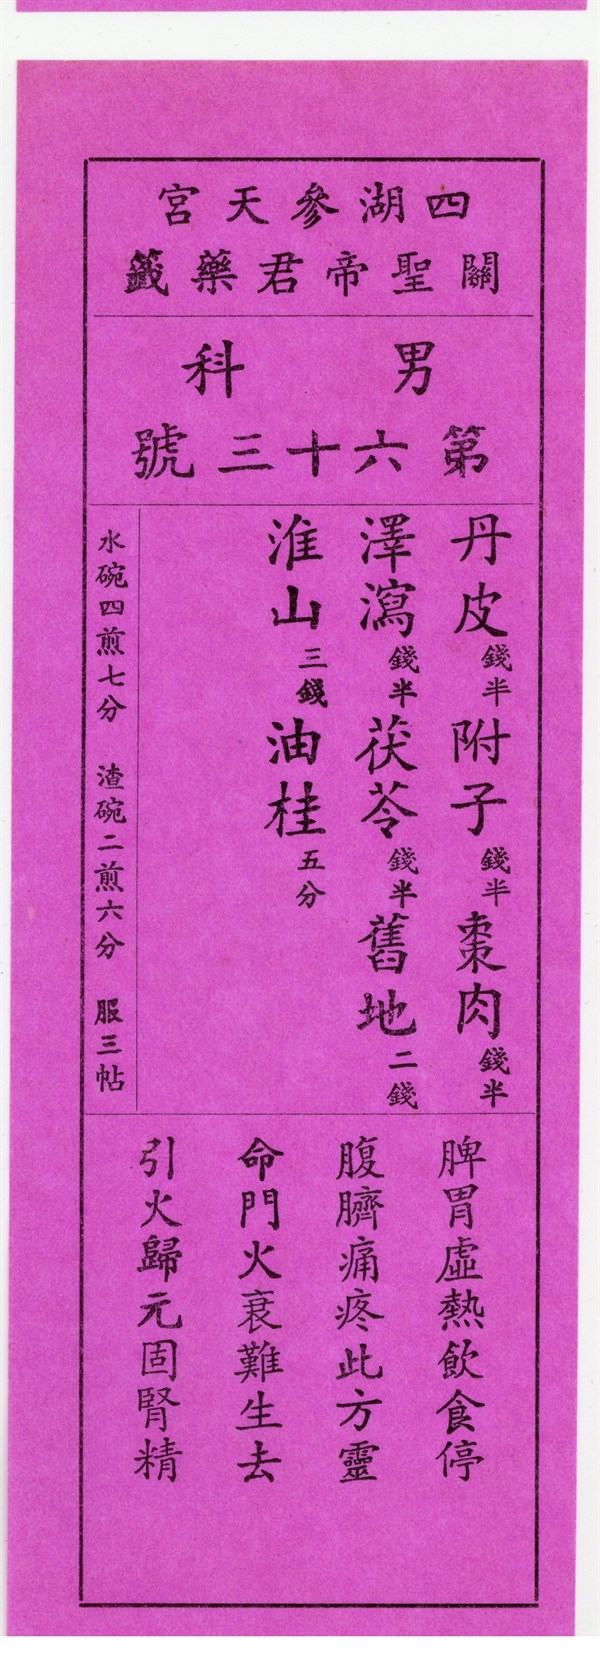 四湖參天宮
關聖帝君藥籤
男科
第六十三號
丹皮錢半 附子錢半 棗肉錢半
澤瀉錢半 茯苓錢半 舊地二錢
淮山三錢 油桂五分
水碗四煎七分 渣碗二煎六分 服三帖
脾胃虛熱飲食停
腹臍痛疼此方靈
命門火衰難生去
引火歸元固腎精